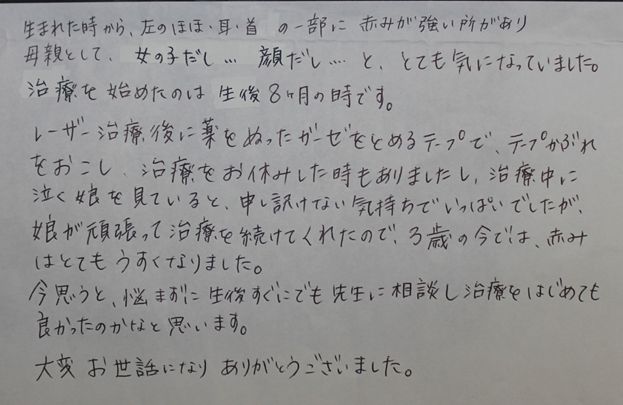 生まれた時から、左のほほ・耳・首 の一部に 赤みが強い所があり
母親として、女の子だし… 顔だし… と、とても気になっていました。
治療を始めたのは 生後8ヶ月の時です。
レーザー治療後に薬をぬったガーゼをとめるテープで、テープかぶれ
をおこし、治療をお休みした時もありましたし、治療中に
泣く娘を見ていると、申し訳けない気持ちでいっぱいでしたが、
娘が頑張って治療を続けてくれたので、3歳の今では、赤み
はとてもうすくなりました。
今思うと、悩まずに生後すぐにでも先生に相談し治療をはじめても
良かったのかなと思います。
大変 お世話になり ありがとうございました。